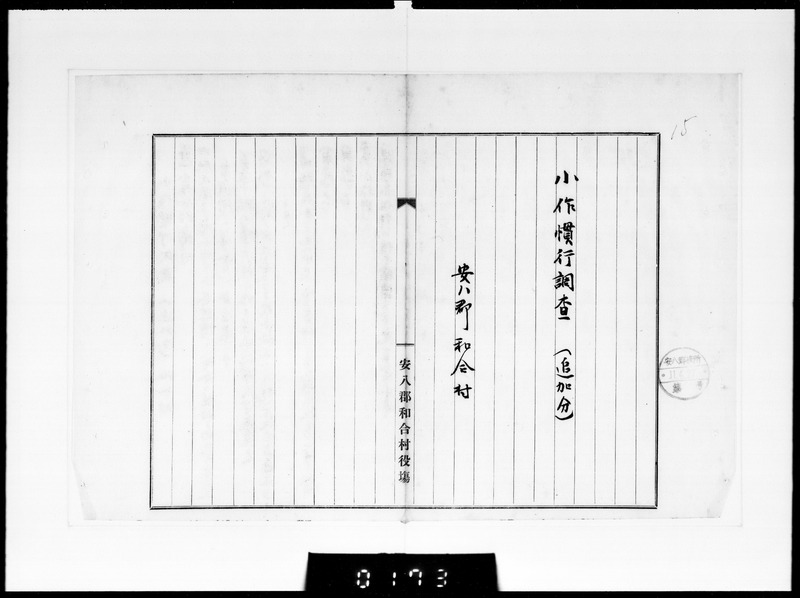 15
小作慣行調査 (追加分)
安八郡和合村
安八郡和合村役塲
0173